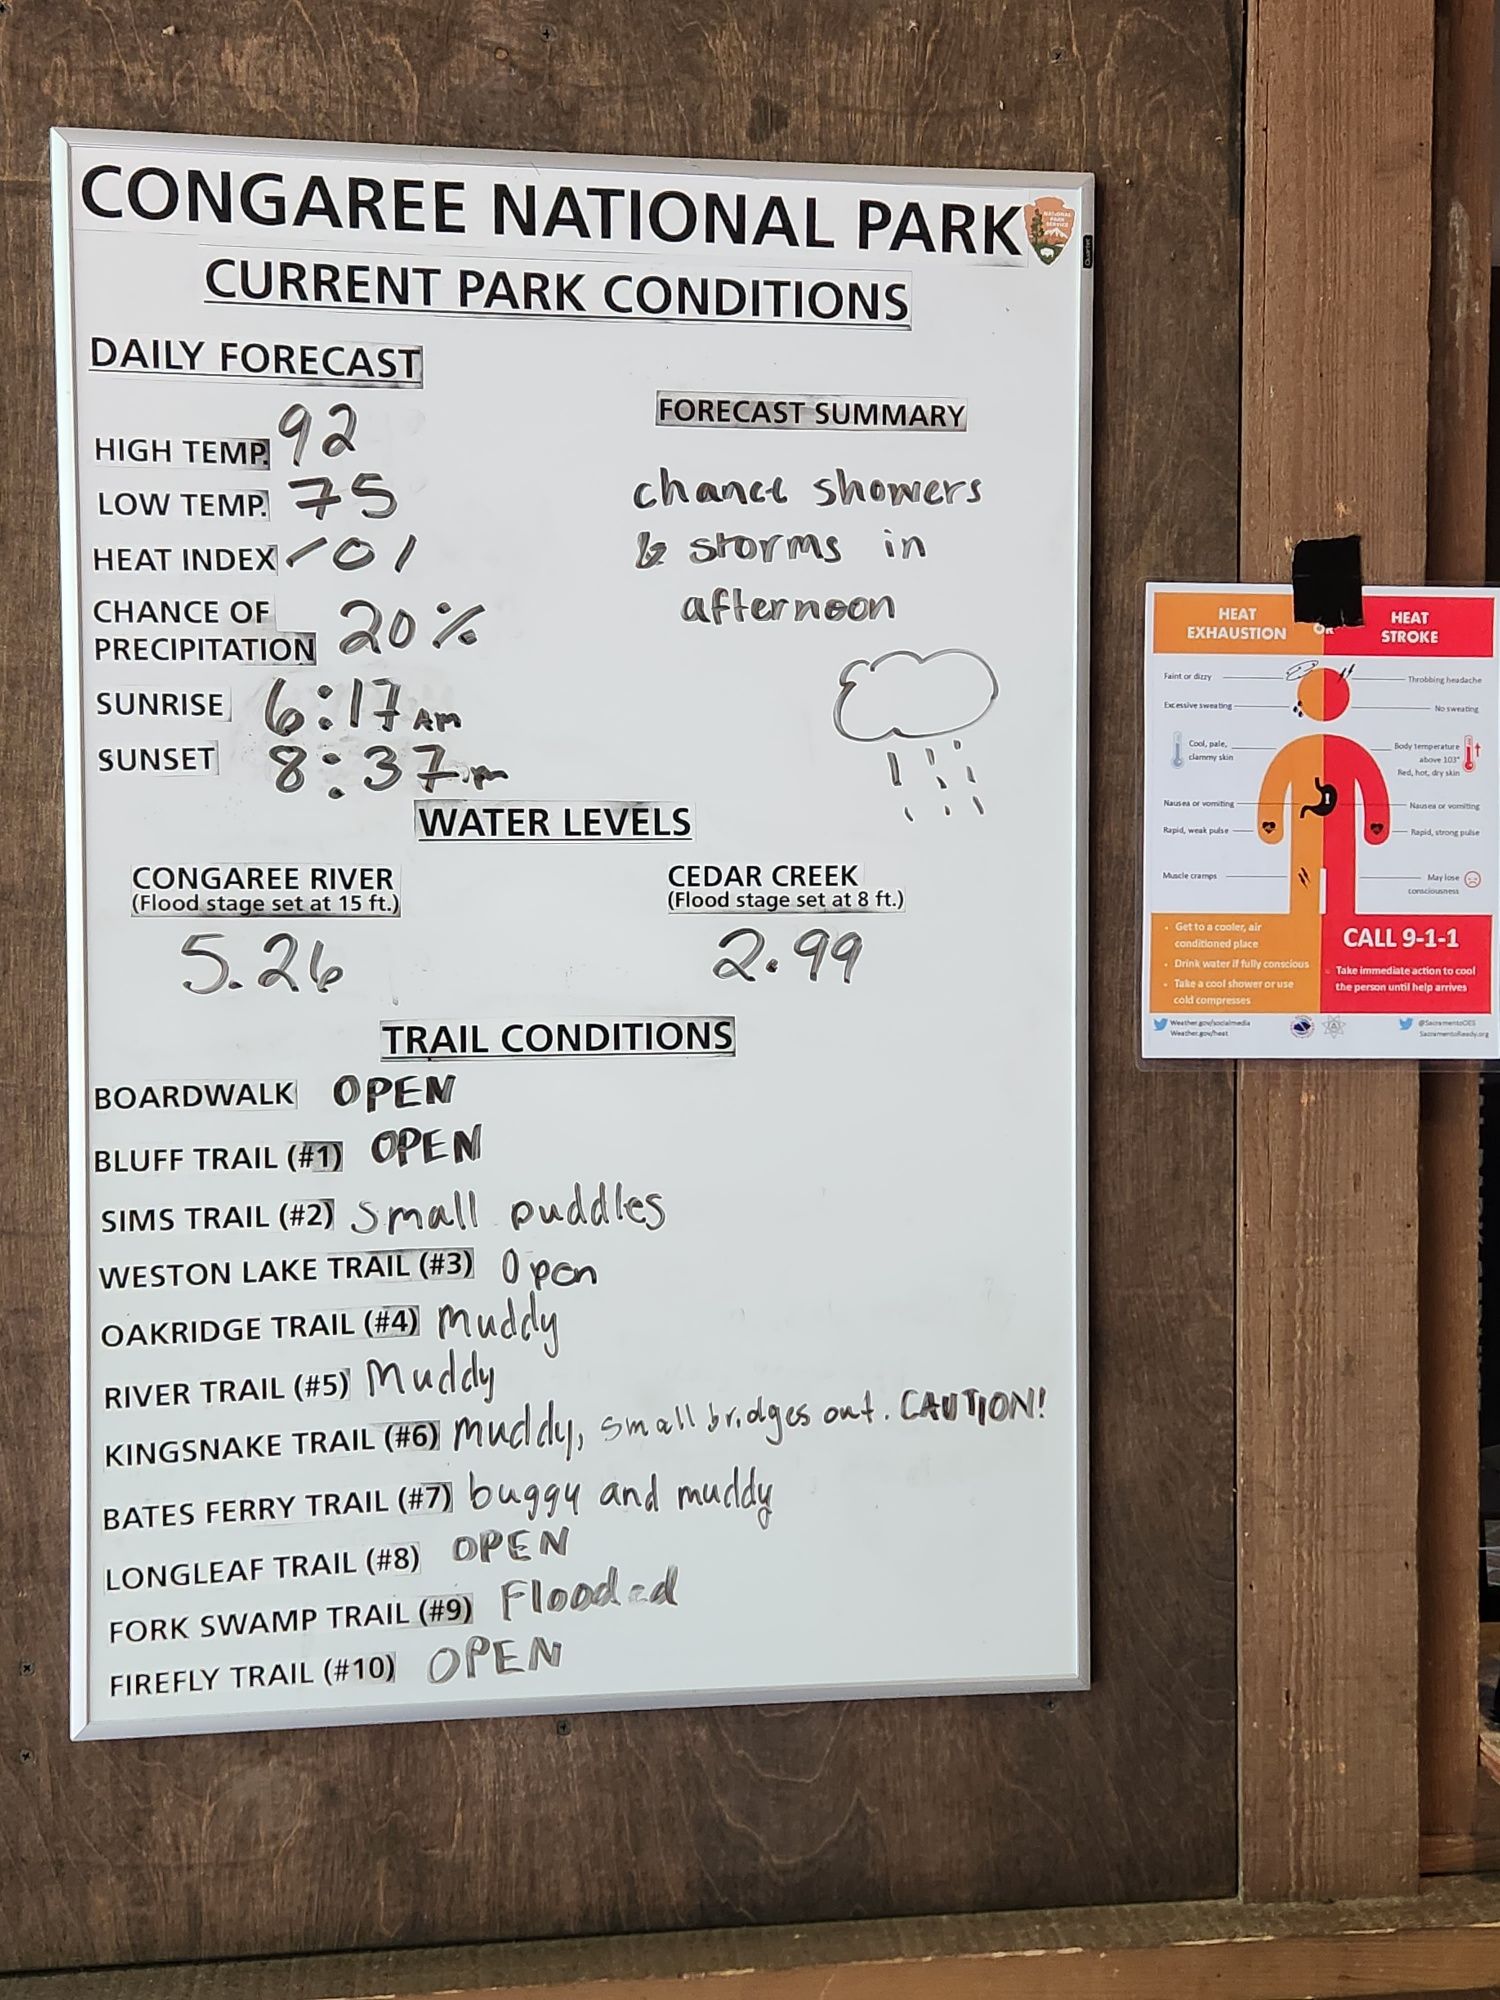 CONGAREE NATIONAL PARK
NATIONAL
PARK
SERVICE
Quartet
CURRENT PARK CONDITIONS
DAILY FORECAST
HIGH TEMP. 92
LOW TEMP. 75
HEAT INDEX 101
CHANCE OF
PRECIPITATION 20%
SUNRISE 6:17 AM
SUNSET 8:37 pm
FORECAST SUMMARY
chance showers
& storms in
afternoon
WATER LEVELS
CONGAREE RIVER
(Flood stage set at 15 ft.)
5.26
CEDAR CREEK
(Flood stage set at 8 ft.)
2.99
TRAIL CONDITIONS
BOARDWALK OPEN
BLUFF TRAIL (#1) OPEN
SIMS TRAIL (#2) small puddles
WESTON LAKE TRAIL (#3) Open
OAKRIDGE TRAIL (#4) muddy
RIVER TRAIL (#5) Muddy
KINGSNAKE TRAIL (#6) muddy, small bridges out. CAUTION!
BATES FERRY TRAIL (#7) buggy and muddy
LONGLEAF TRAIL (#8) OPEN
FORK SWAMP TRAIL (#9) Flooded
FIREFLY TRAIL (#10) OPEN
HEAT
EXHAUSTION
OR
HEAT
STROKE
Faint or dizzy
Excessive sweating
Cool, pale,
clammy skin
Nausea or vomiting
Rapid, weak pulse
Muscle cramps
Throbbing headache
No sweating
Body temperature
above 103°
Red, hot, dry skin
Nausea or vomiting
Rapid, strong pulse
May lose
consciousness
• Get to a cooler, air
conditioned place
• Drink water if fully conscious
• Take a cool shower or use
cold compresses
CALL 9-1-1
• Take immediate action to cool
the person until help arrives
Weather.gov/socialmedia
Weather.gov/heat
@SacramentoOES
SacramentoReady.org